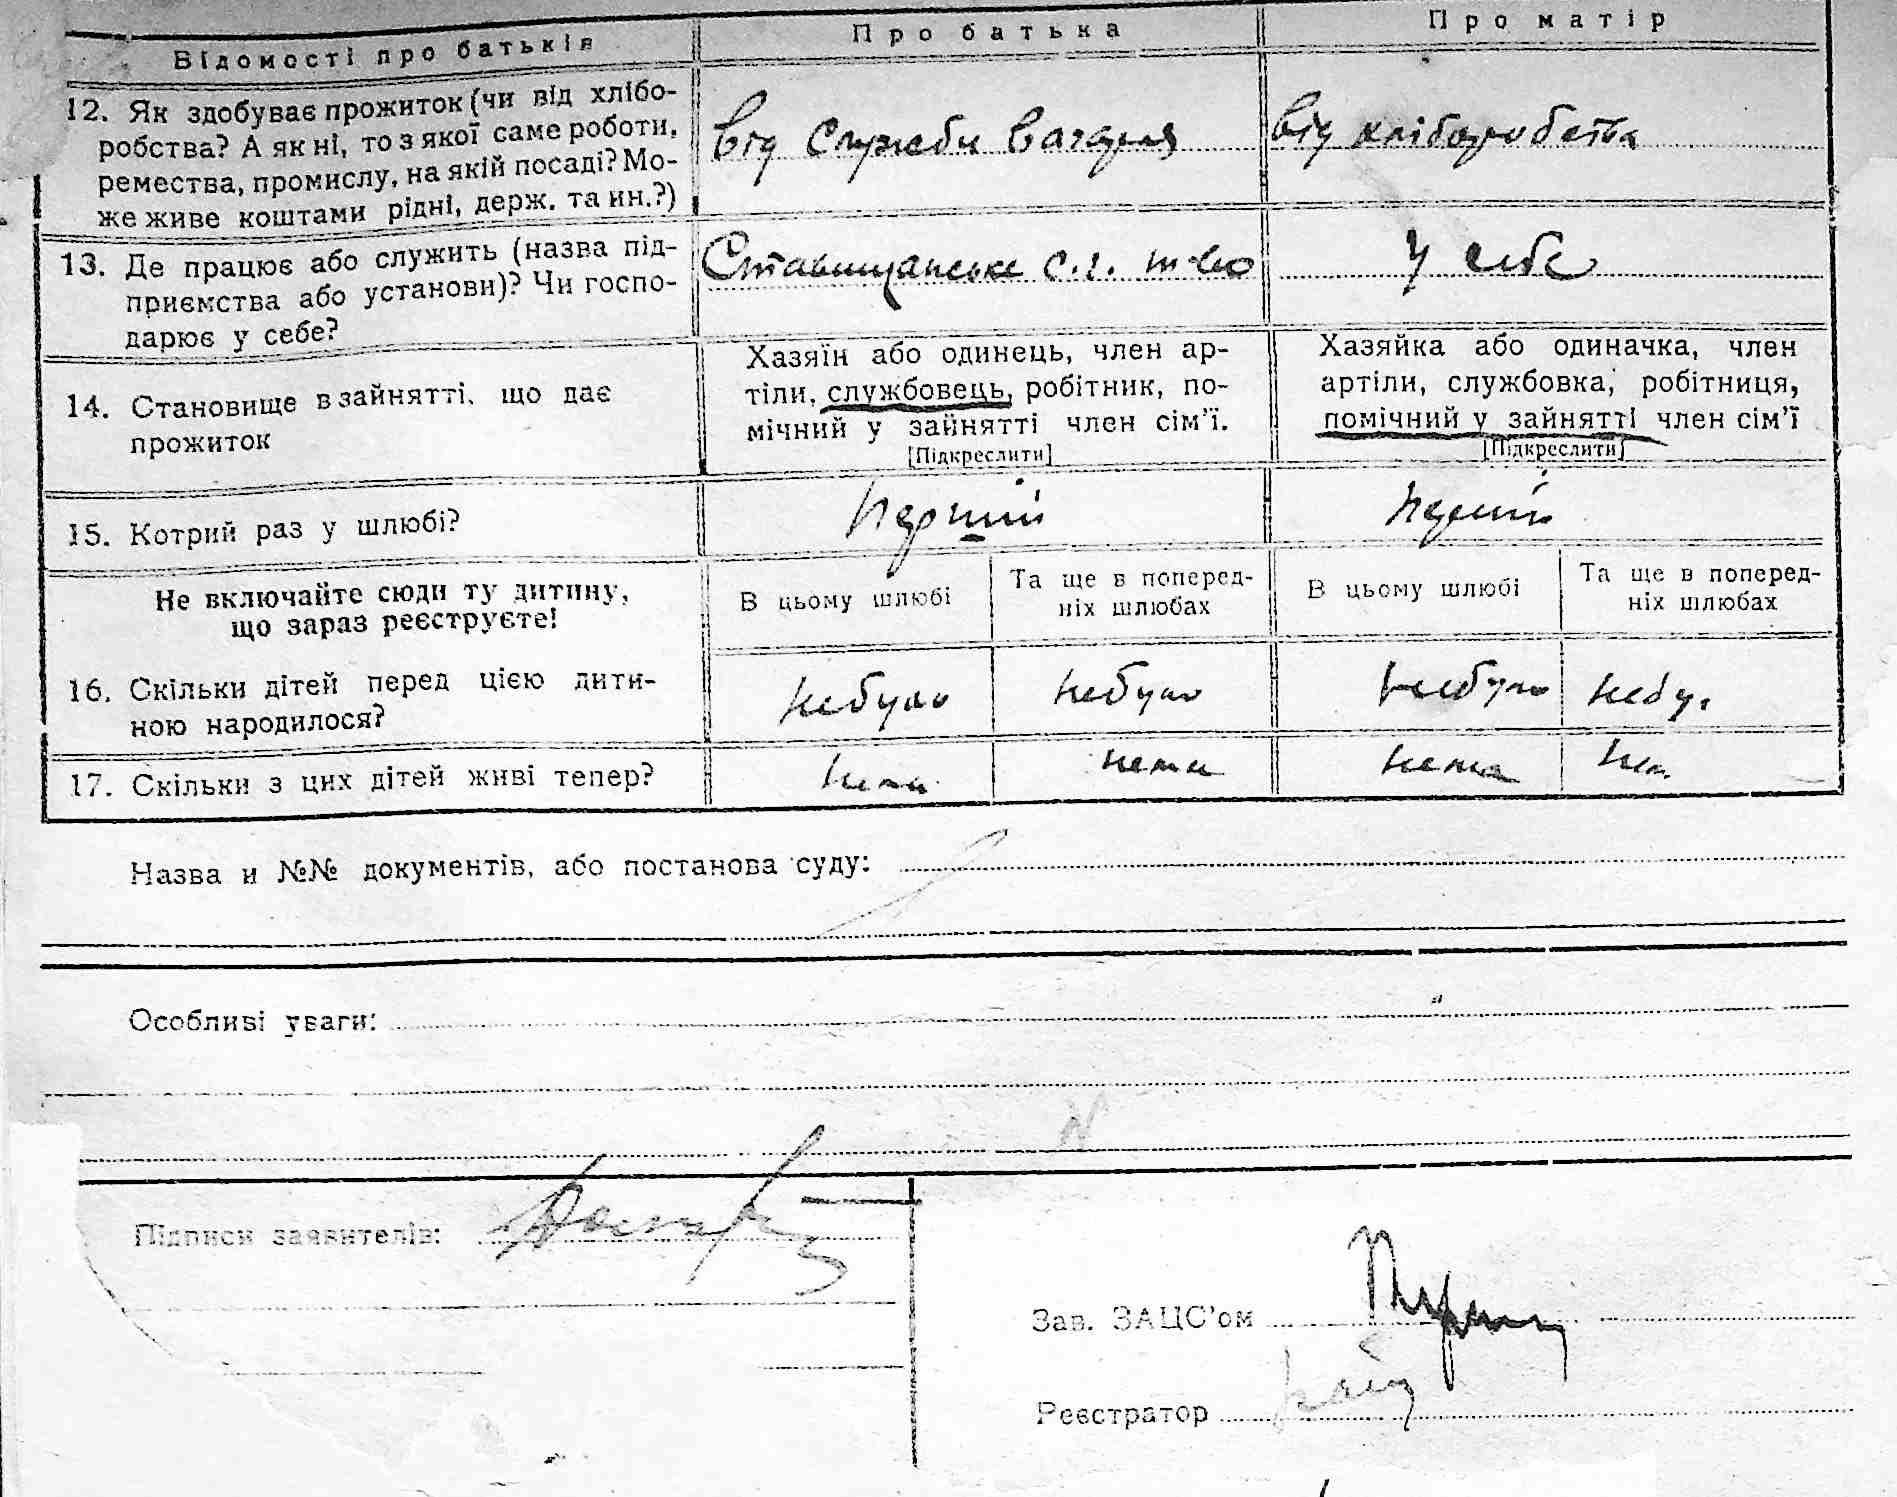 Відомості про батьків
Про батька
Про матір
12. Як здобуває прожиток (чи від хлібо-
робства? А як ні, то з якої саме роботи,
ремества, промислу, на якій посаді? Мо-
же живе коштами рідні, держ. та ин.?)
від служби
від хліборобства
13. Де працює або служить (назва під-
приємства або установи)? Чи госпо-
дарює у себе?
Ставищанське с.г. т-во
у себе
14. Становище в зайнятті, що дає
прожиток
Хазяїн або одинець, член ар-
тіли, службовець, робітник, по-
мічний у зайнятті член сім'ї.
[Підкреслити]
Хазяйка або одиначка, член
артіли, службовка, робітниця,
помічний у зайнятті член сім'ї
[Підкреслити]
15. Котрий раз у шлюбі?
перший
перший
Не включайте сюди ту дитину,
що зараз реєструєте!
В цьому шлюбі
Та ще в поперед-
ніх шлюбах
В цьому шлюбі
Та ще в поперед-
ніх шлюбах
16. Скільки дітей перед цією дити-
ною народилося?
небуло
небуло
небуло
небу
17. Скільки з цих дітей живі тепер?
нема
нема
нема
нем
Назва и №№ документів, або постанова суду:
Особливі уваги:
Підписи заявителів:
Зав. ЗАЦС'ом
Реєстратор